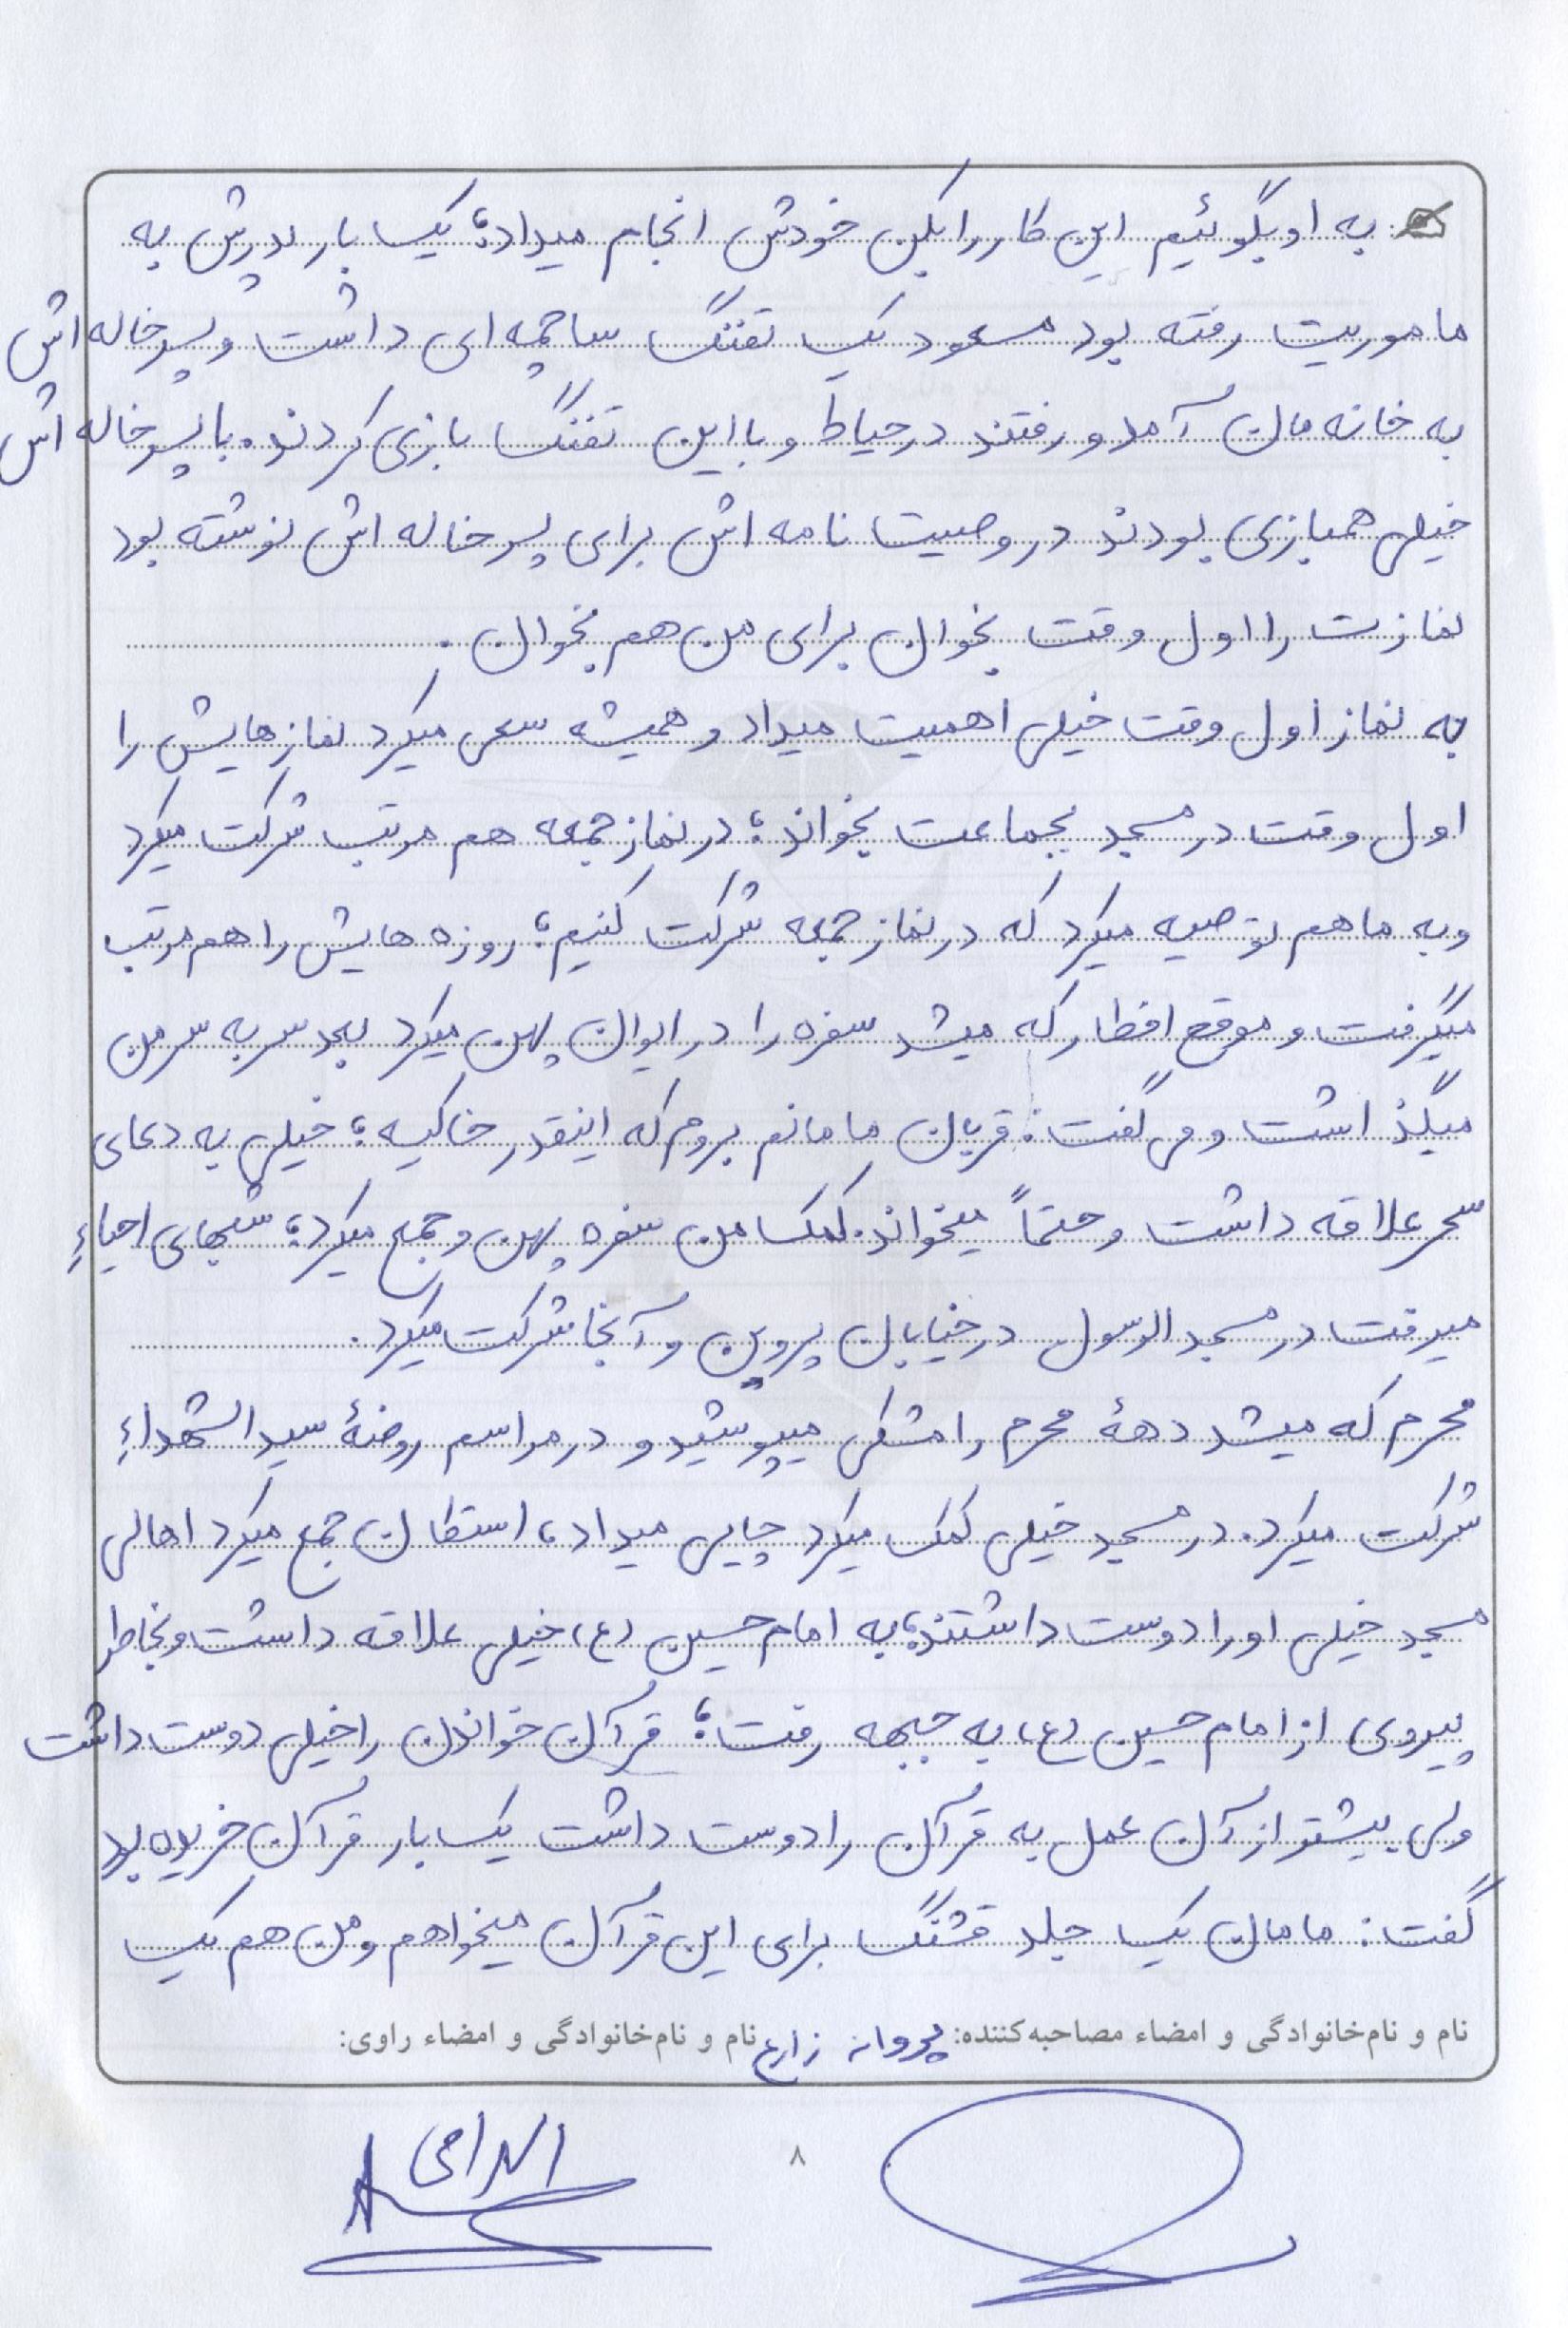 به او بگوئیم این کار را بکن خودش انجام میداد؛ یک بار پدرش به
ماموریت رفته بود مسعود یک تفنگ ساچمه ای داشت و پسرخاله اش
به خانه مان آمد و رفتند در حیاط و با این تفنگ بازی کردند. با پسرخاله اش
خیلی همبازی بودند در وصیت نامه اش برای پسرخاله اش نوشته بود
نمازت را اول وقت بخوان برای من هم بخوان.
به نماز اول وقت خیلی اهمیت میداد و همیشه سعی میکرد نمازهایش را
اول وقت در مسجد بجماعت بخواند؛ در نماز جمعه هم مرتب شرکت میکرد
و به ما هم توصیه میکرد که در نماز جمعه شرکت کنیم؛ روزه هایش را هم مرتب
میگرفت و موقع افطار که میشد سفره را در ایوان پهن میکرد بعد سر به سر من
میگذاشت و می گفت: قربان مامانم بروم که اینقدر خاکیه؛ خیلی به دعای
سحر علاقه داشت و حتماً میخواند. کمک من سفره پهن و جمع میکرد؛ شبهای احیاءِ
میرفت در مسجد الرسول در خیابان پروین و آنجا شرکت میکرد.
محرم که میشد دههٔ محرم را مشکی میپوشید و در مراسم روضهٔ سیدالشهداءِ
شرکت میکرد. در مسجد خیلی کمک میکرد چایی میداد، استکان جمع میکرد اهالی
مسجد خیلی او را دوست داشتند؛ به امام حسین (ع) خیلی علاقه داشت و بخاطر
پیروی از امام حسین (ع) به جبهه رفت؛ قرآن خواندن را خیلی دوست داشت
ولی بیشتر از آن عمل به قرآن را دوست داشت یک بار قرآن خریده بود
گفت: مامان یک جلد قشنگ برای این قرآن میخواهم و من هم یک
نام و نام‌خانوادگی و امضاء مصاحبه‌کننده: پروانه زارع نام و نام‌خانوادگی و امضاء راوی:
۸